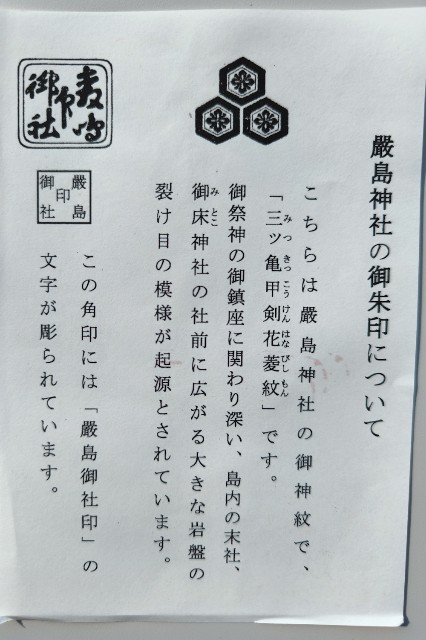 嚴島神社の御朱印について
こちらは嚴島神社の御神紋で、
「三ッ亀甲剣花菱紋」です。
みつきっこうけんはなびしもん
御祭神の御鎮座に関わり深い、島内の末社、
御床神社の社前に広がる大きな岩盤の
みとこ
裂け目の模様が起源とされています。
嚴島
印
御社
この角印には「嚴島御社印」の
文字が彫られています。